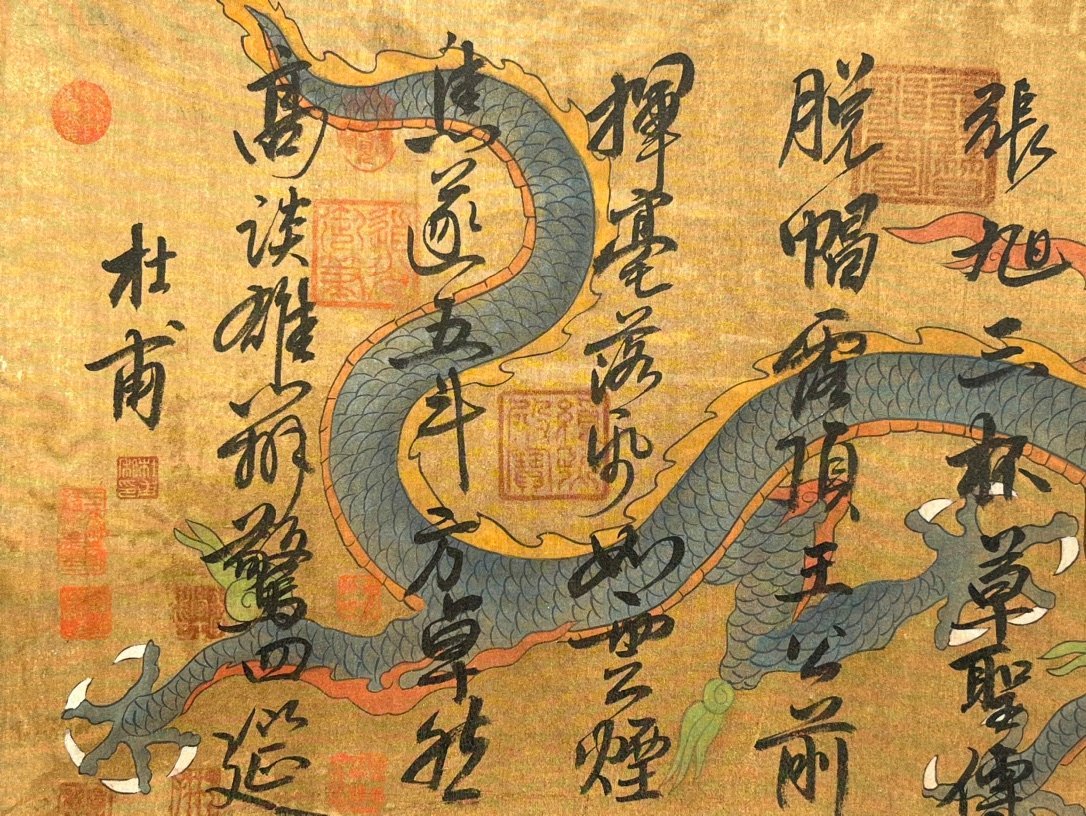 張旭三杯草聖傳
脱帽露頂王公前
揮毫落紙如雲煙
焦遂五斗方卓然
高談雄辯驚四筵
杜甫